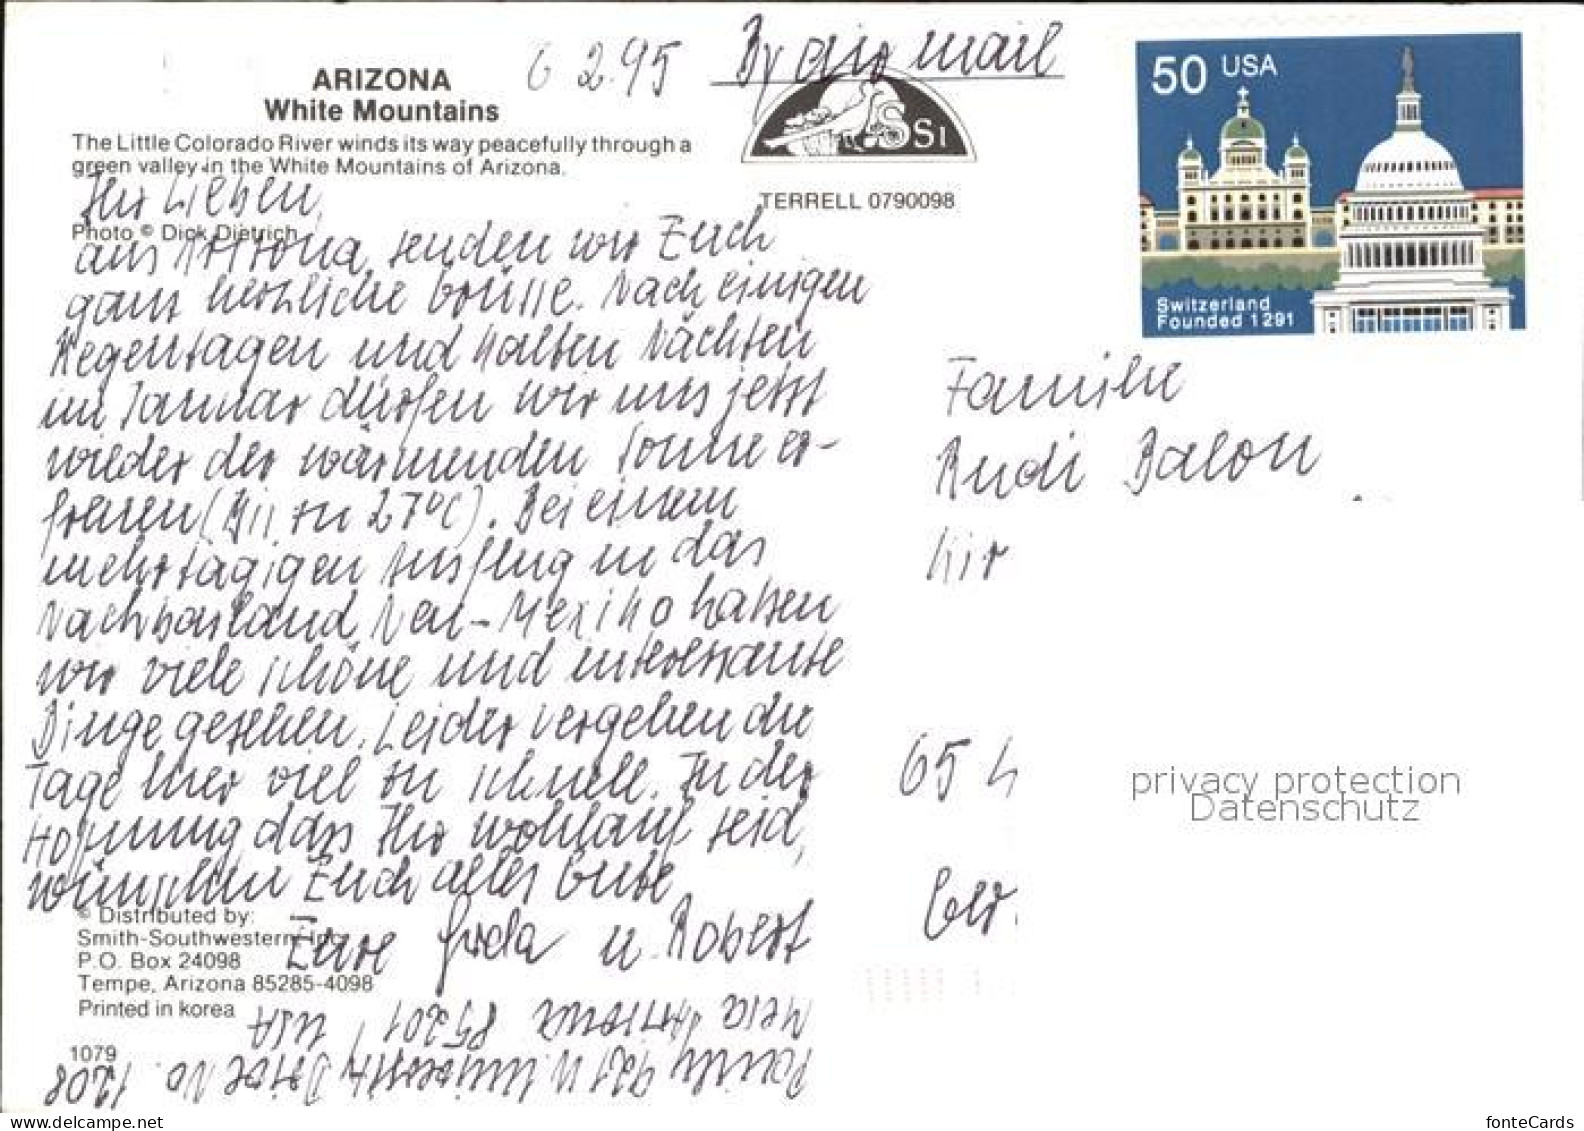 ARIZONA
White Mountains
The Little Colorado River winds its way peacefully through a
green valley in the White Mountains of Arizona.
Photo © Dick Dietrich
6 2.95
By air mail
SSI
TERRELL 0790098
50 USA
Switzerland
Founded 1291
Ihr Lieben,
aus Arizona senden wir Euch
ganz herzliche Grüsse. Nach einigen
Regentagen und kalten Nächten
im Januar dürfen wir uns jetzt
wieder der wärmenden Sonne er-
freuen (Bis zu 27°C). Bei einem
mehrtägigen Ausflug in das
Nachbarland Neu-Mexiko haben
wir viele schöne und interessante
Dinge gesehen. Leider vergehen die
Tage hier viel zu schnell. In der
Hoffnung dass Ihr wohlauf seid,
wünschen Euch alles Gute
Eure Gerda u. Robert
© Distributed by:
Smith-Southwestern, Inc.
P.O. Box 24098
Tempe, Arizona 85285-4098
Printed in korea
1079
921 W. University Drive No. 1208
Mesa Arizona 85201, USA
Familie
Rudi Balon
Kir
65
privacy protection
Datenschutz
www.delcampe.net
fonteCards